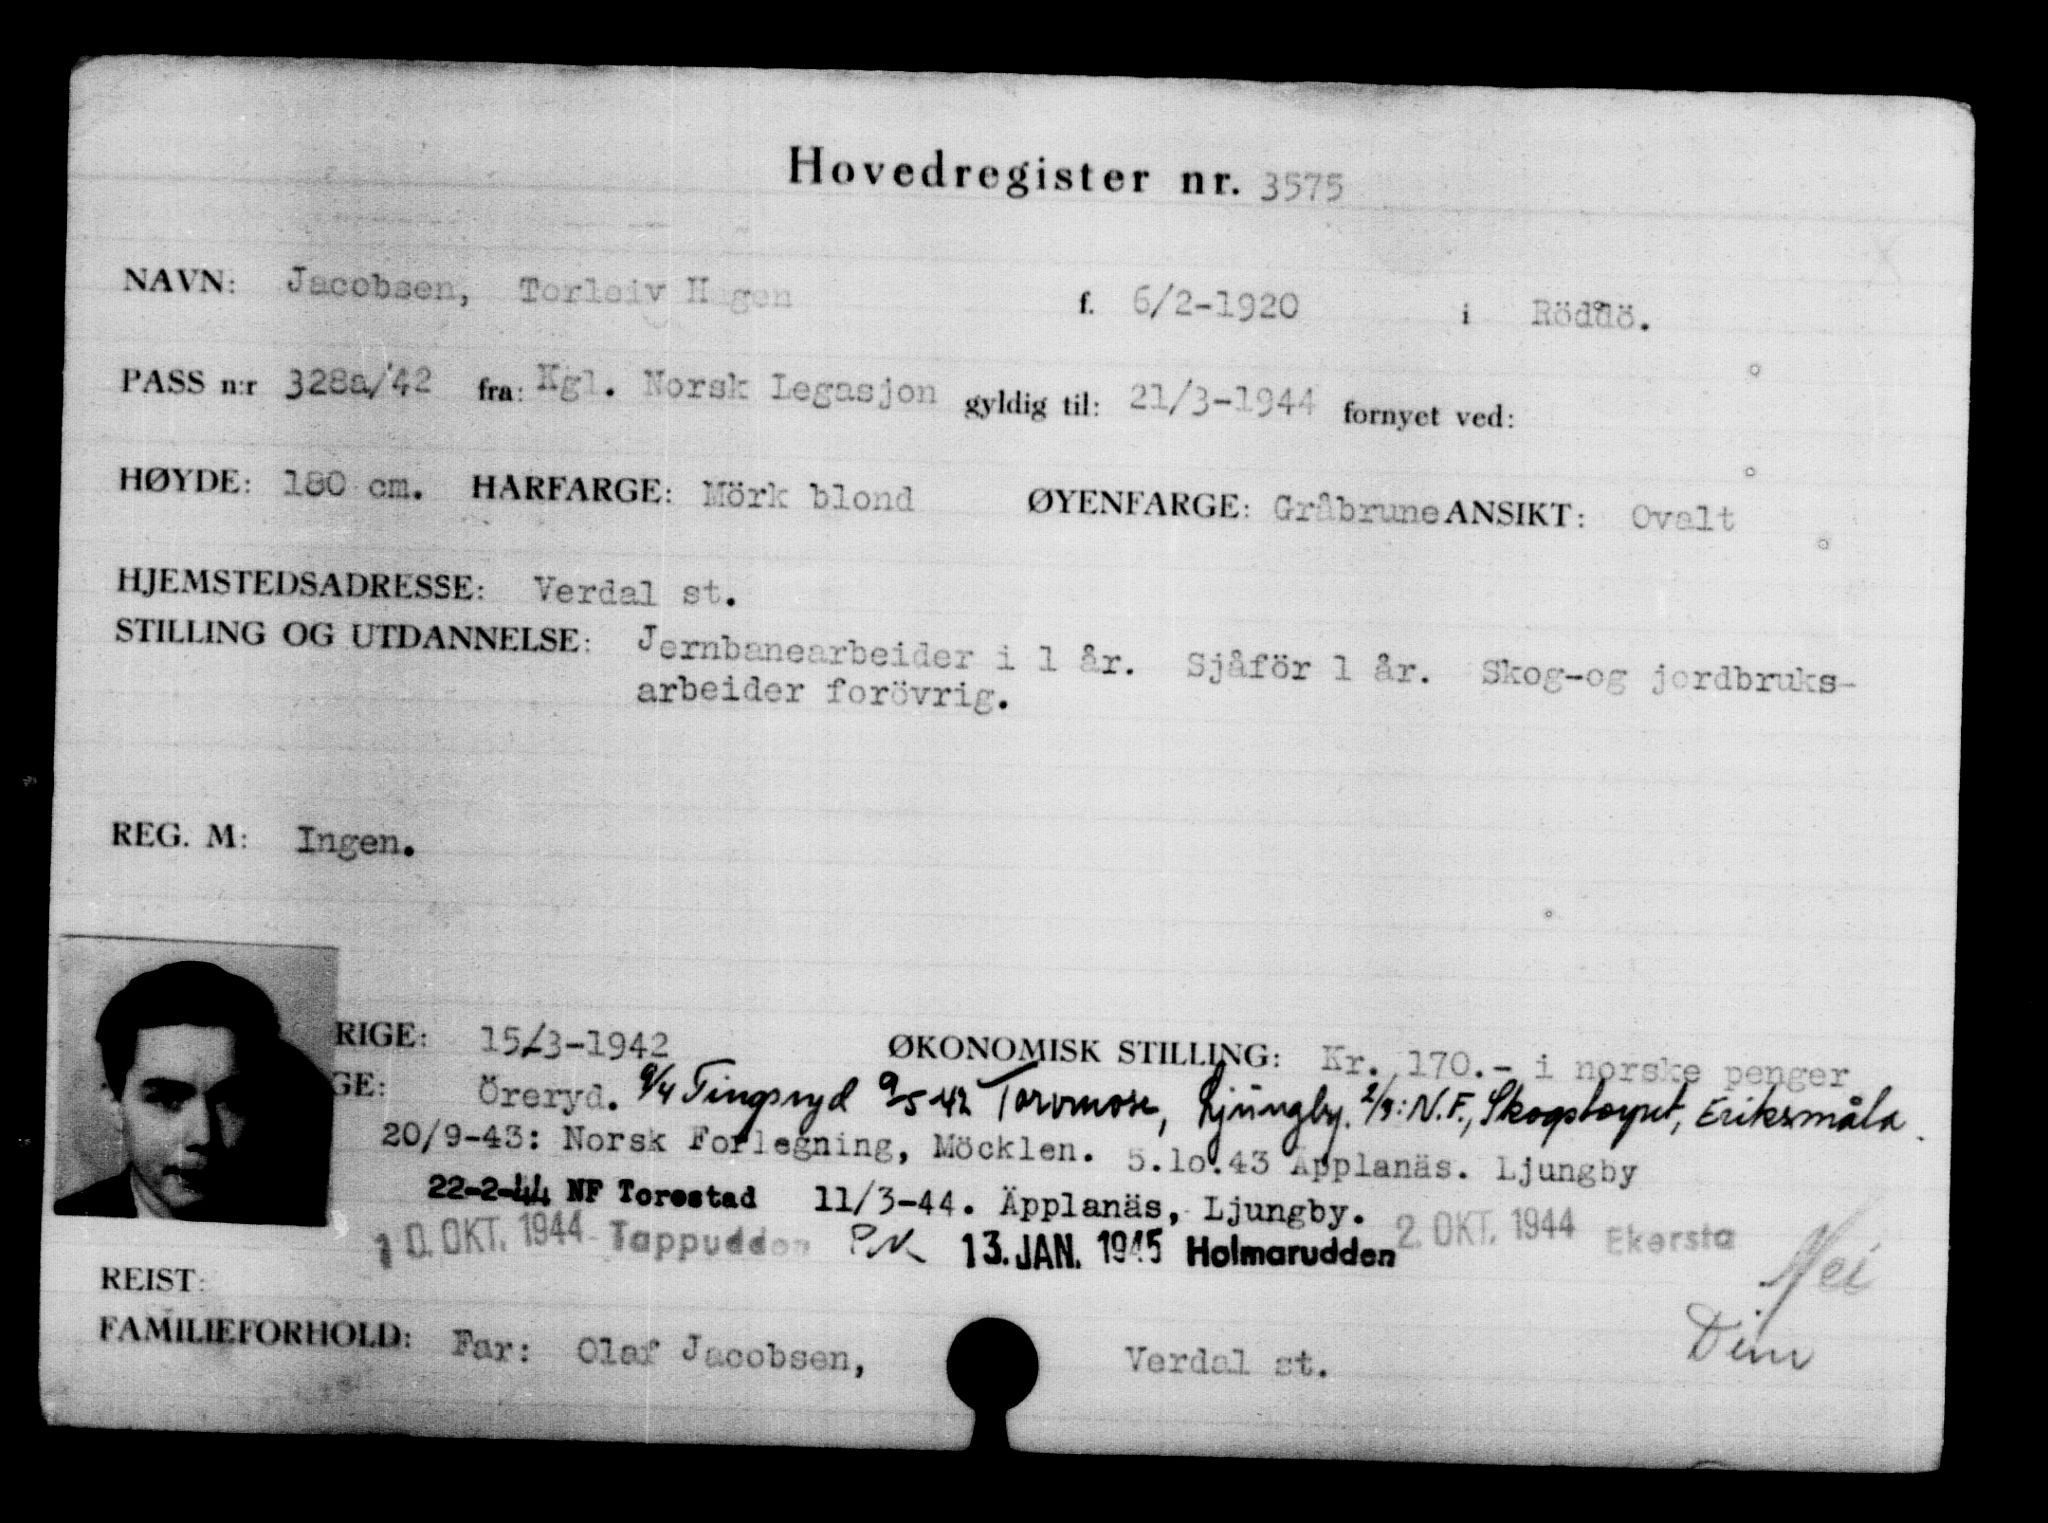 Hovedregister nr. 3575
NAVN: Jacobsen, Torleiv Hagen f. 6/2-1920 i Rödöö.
PASS n:r 328a/42 fra: Kgl. Norsk Legasjon gyldig til: 21/3-1944 fornyet ved:
HØYDE: 180 cm. HARFARGE: Mörk blond ØYENFARGE: Gråbrune ANSIKT: Ovalt
HJEMSTEDSADRESSE: Verdal st.
STILLING OG UTDANNELSE: Jernbanearbeider i 1 år. Sjåför 1 år. Skog-og jordbruks-
arbeider forövrig.
REG. M: Ingen.
RIGE: 15/3-1942 ØKONOMISK STILLING: Kr. 170.- i norske penger
GE: Öreryd. 9/4 Tingsryd 9/5-42 Torvmose, Ljungby. 2/9: N.F., Skogstorpet, Eriksmåla.
20/9-43: Norsk Forlegning, Möcklen. 5.10.43 Äpplanäs. Ljungby
22-2-44 NF Torestad 11/3-44. Äpplanäs, Ljungby.
10. OKT. 1944 Tappudden 13. JAN. 1945 Holmarudden 2. OKT. 1944 Ekersta
Nei
REIST:
FAMILIEFORHOLD: Far: Olaf Jacobsen, Verdal st.
Dim